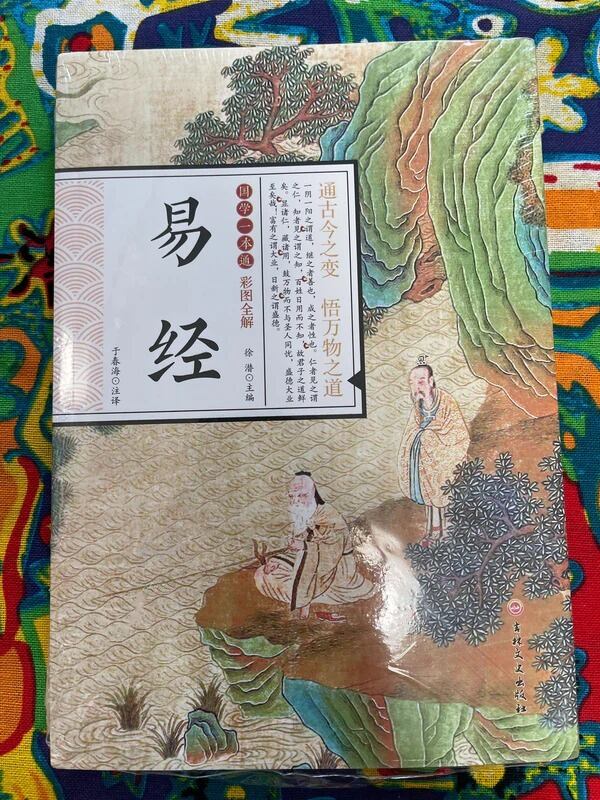 通古今之变 悟万物之道
一阴一阳之谓道，继之者善也，成之者性也。仁者见之谓
之仁，知者见之谓之知，百姓日用而不知，故君子之道鲜
矣。显诸仁，藏诸用，鼓万物而不与圣人同忧，盛德大业
至矣哉！富有之谓大业，日新之谓盛德。
国学一本通 彩图全解
徐潜◎主编
易经
于春海◎注译
吉林文史出版社